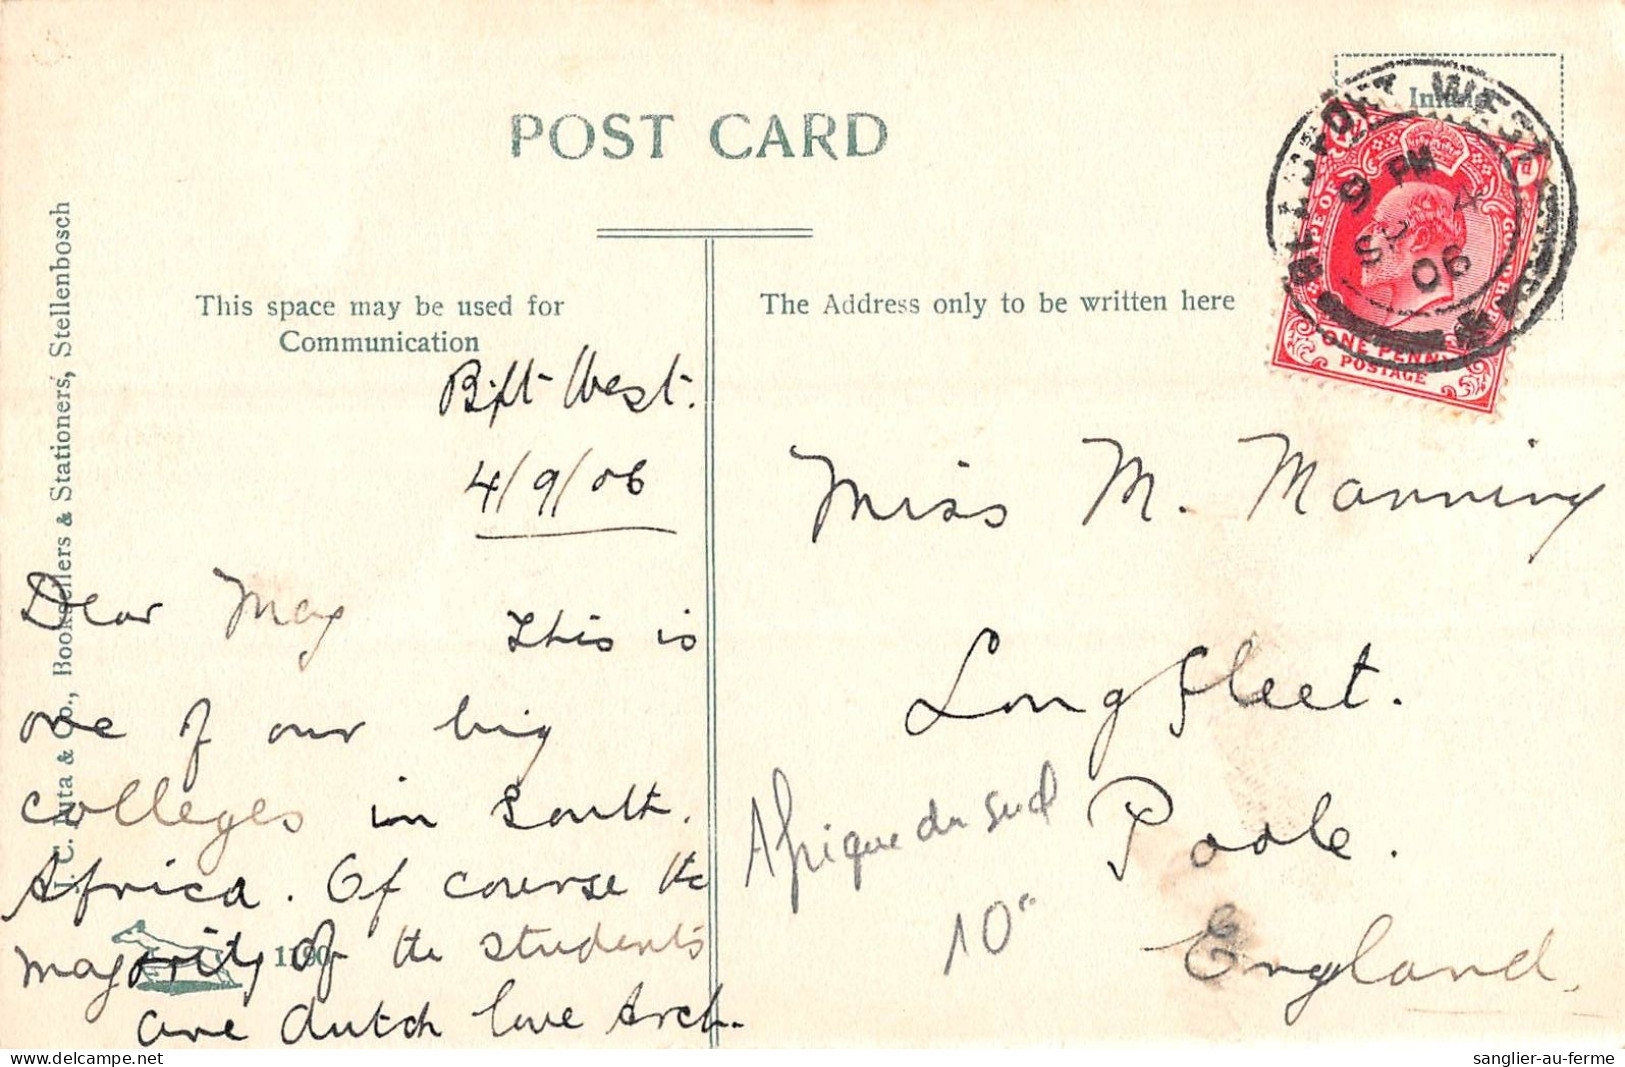 POST CARD
This space may be used for
Communication
The Address only to be written here
J. C. Juta & Co., Booksellers & Stationers, Stellenbosch
WEST
9 PM
SP 4
06
ONE PENNY
POSTAGE
Bft West.
4/9/06
Dear May This is
one of our big
colleges in South.
Africa. Of course the
majority of the students
are dutch love Arch.
Miss M. Manning
Longfleet.
Poole.
England.
Afrique du sud
10"
sanglier-au-ferme